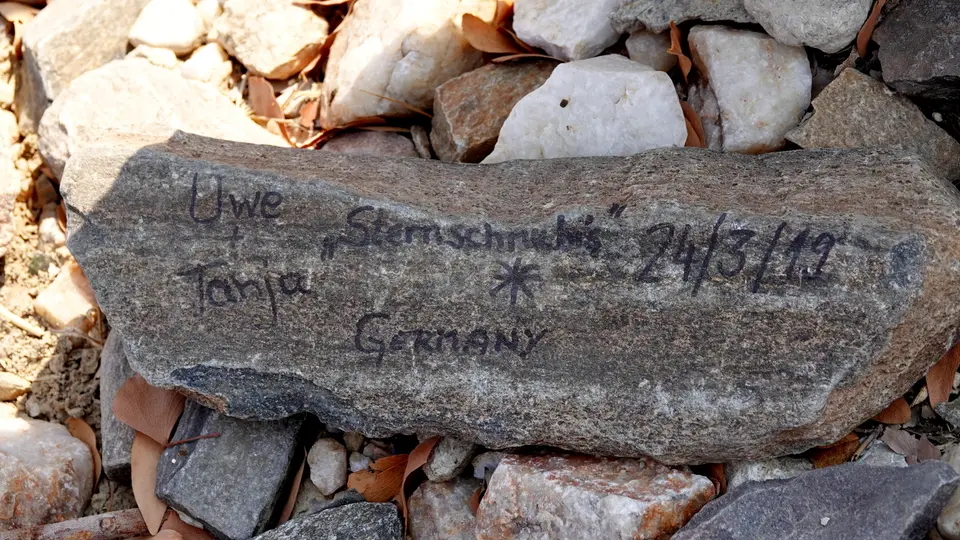 Uwe
+
Tanja
„Sternschnuchis“
*
GERMANY
24/3/19